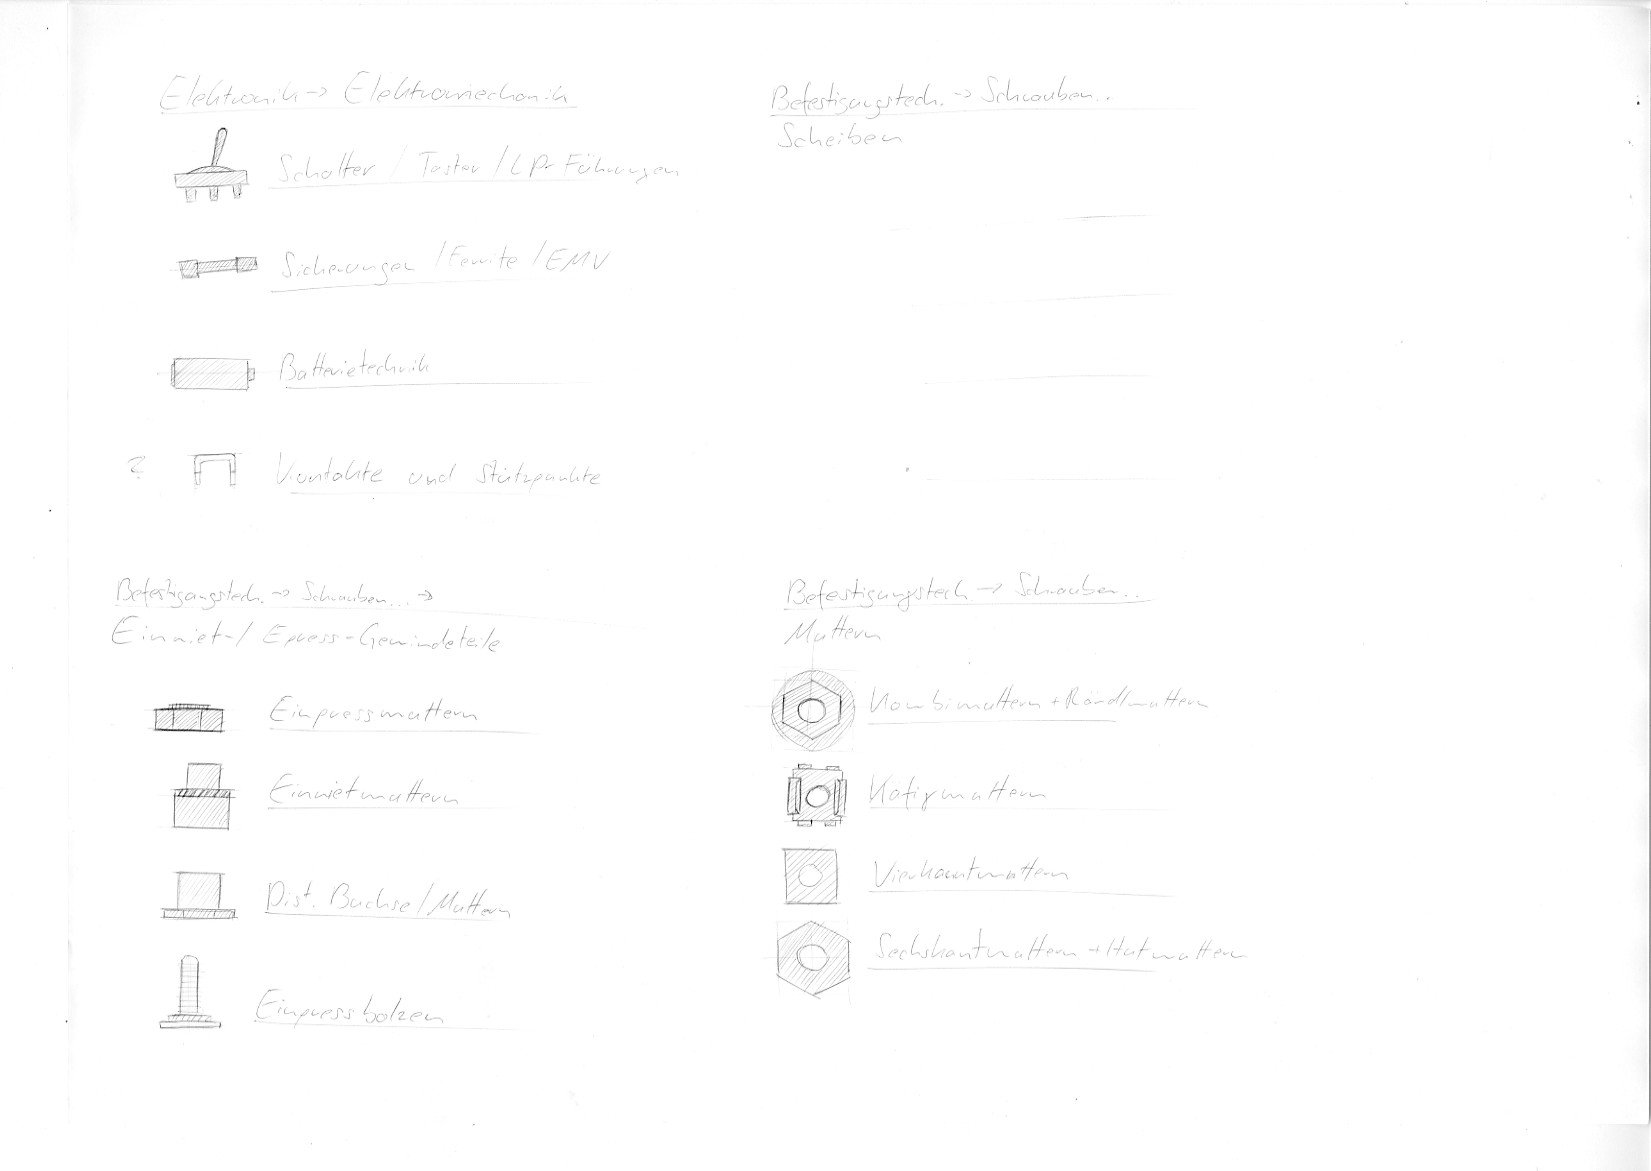 Elektronik → Elektromechanik
Schalter / Taster / LP-Führungen
Sicherungen / Ferrite / EMV
Batterietechnik
? Kontakte und Stützpunkte
Befestigungstech. → Schrauben.. 
Scheiben
Befestigungstech. → Schrauben... →
Einniet-/ Epress-Gewindeteile
Einpressmuttern
Einnietmuttern
Dist. Buchse/Muttern
Einpressbolzen
Befestigungstech → Schrauben..
Muttern
Kombimuttern + Rändlmuttern
Käfigmuttern
Vierkantmuttern
Sechskantmuttern + Hutmuttern